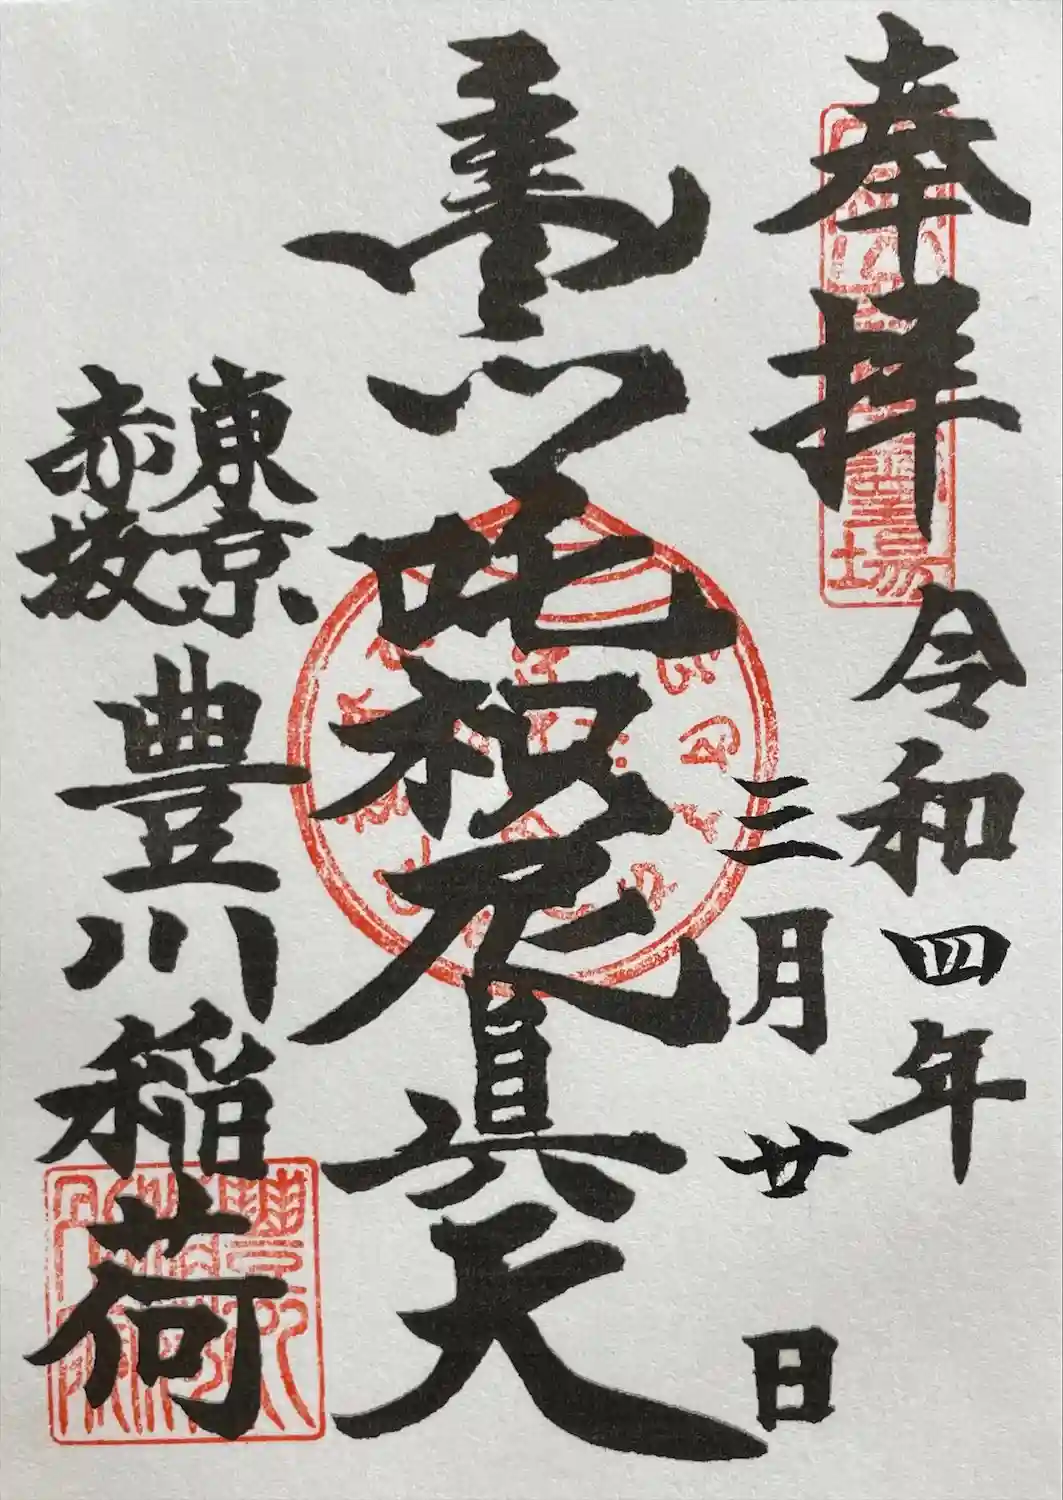 奉拝
令和四年
三月廿日
吒枳尼真天
東京
赤坂
豊川稲荷